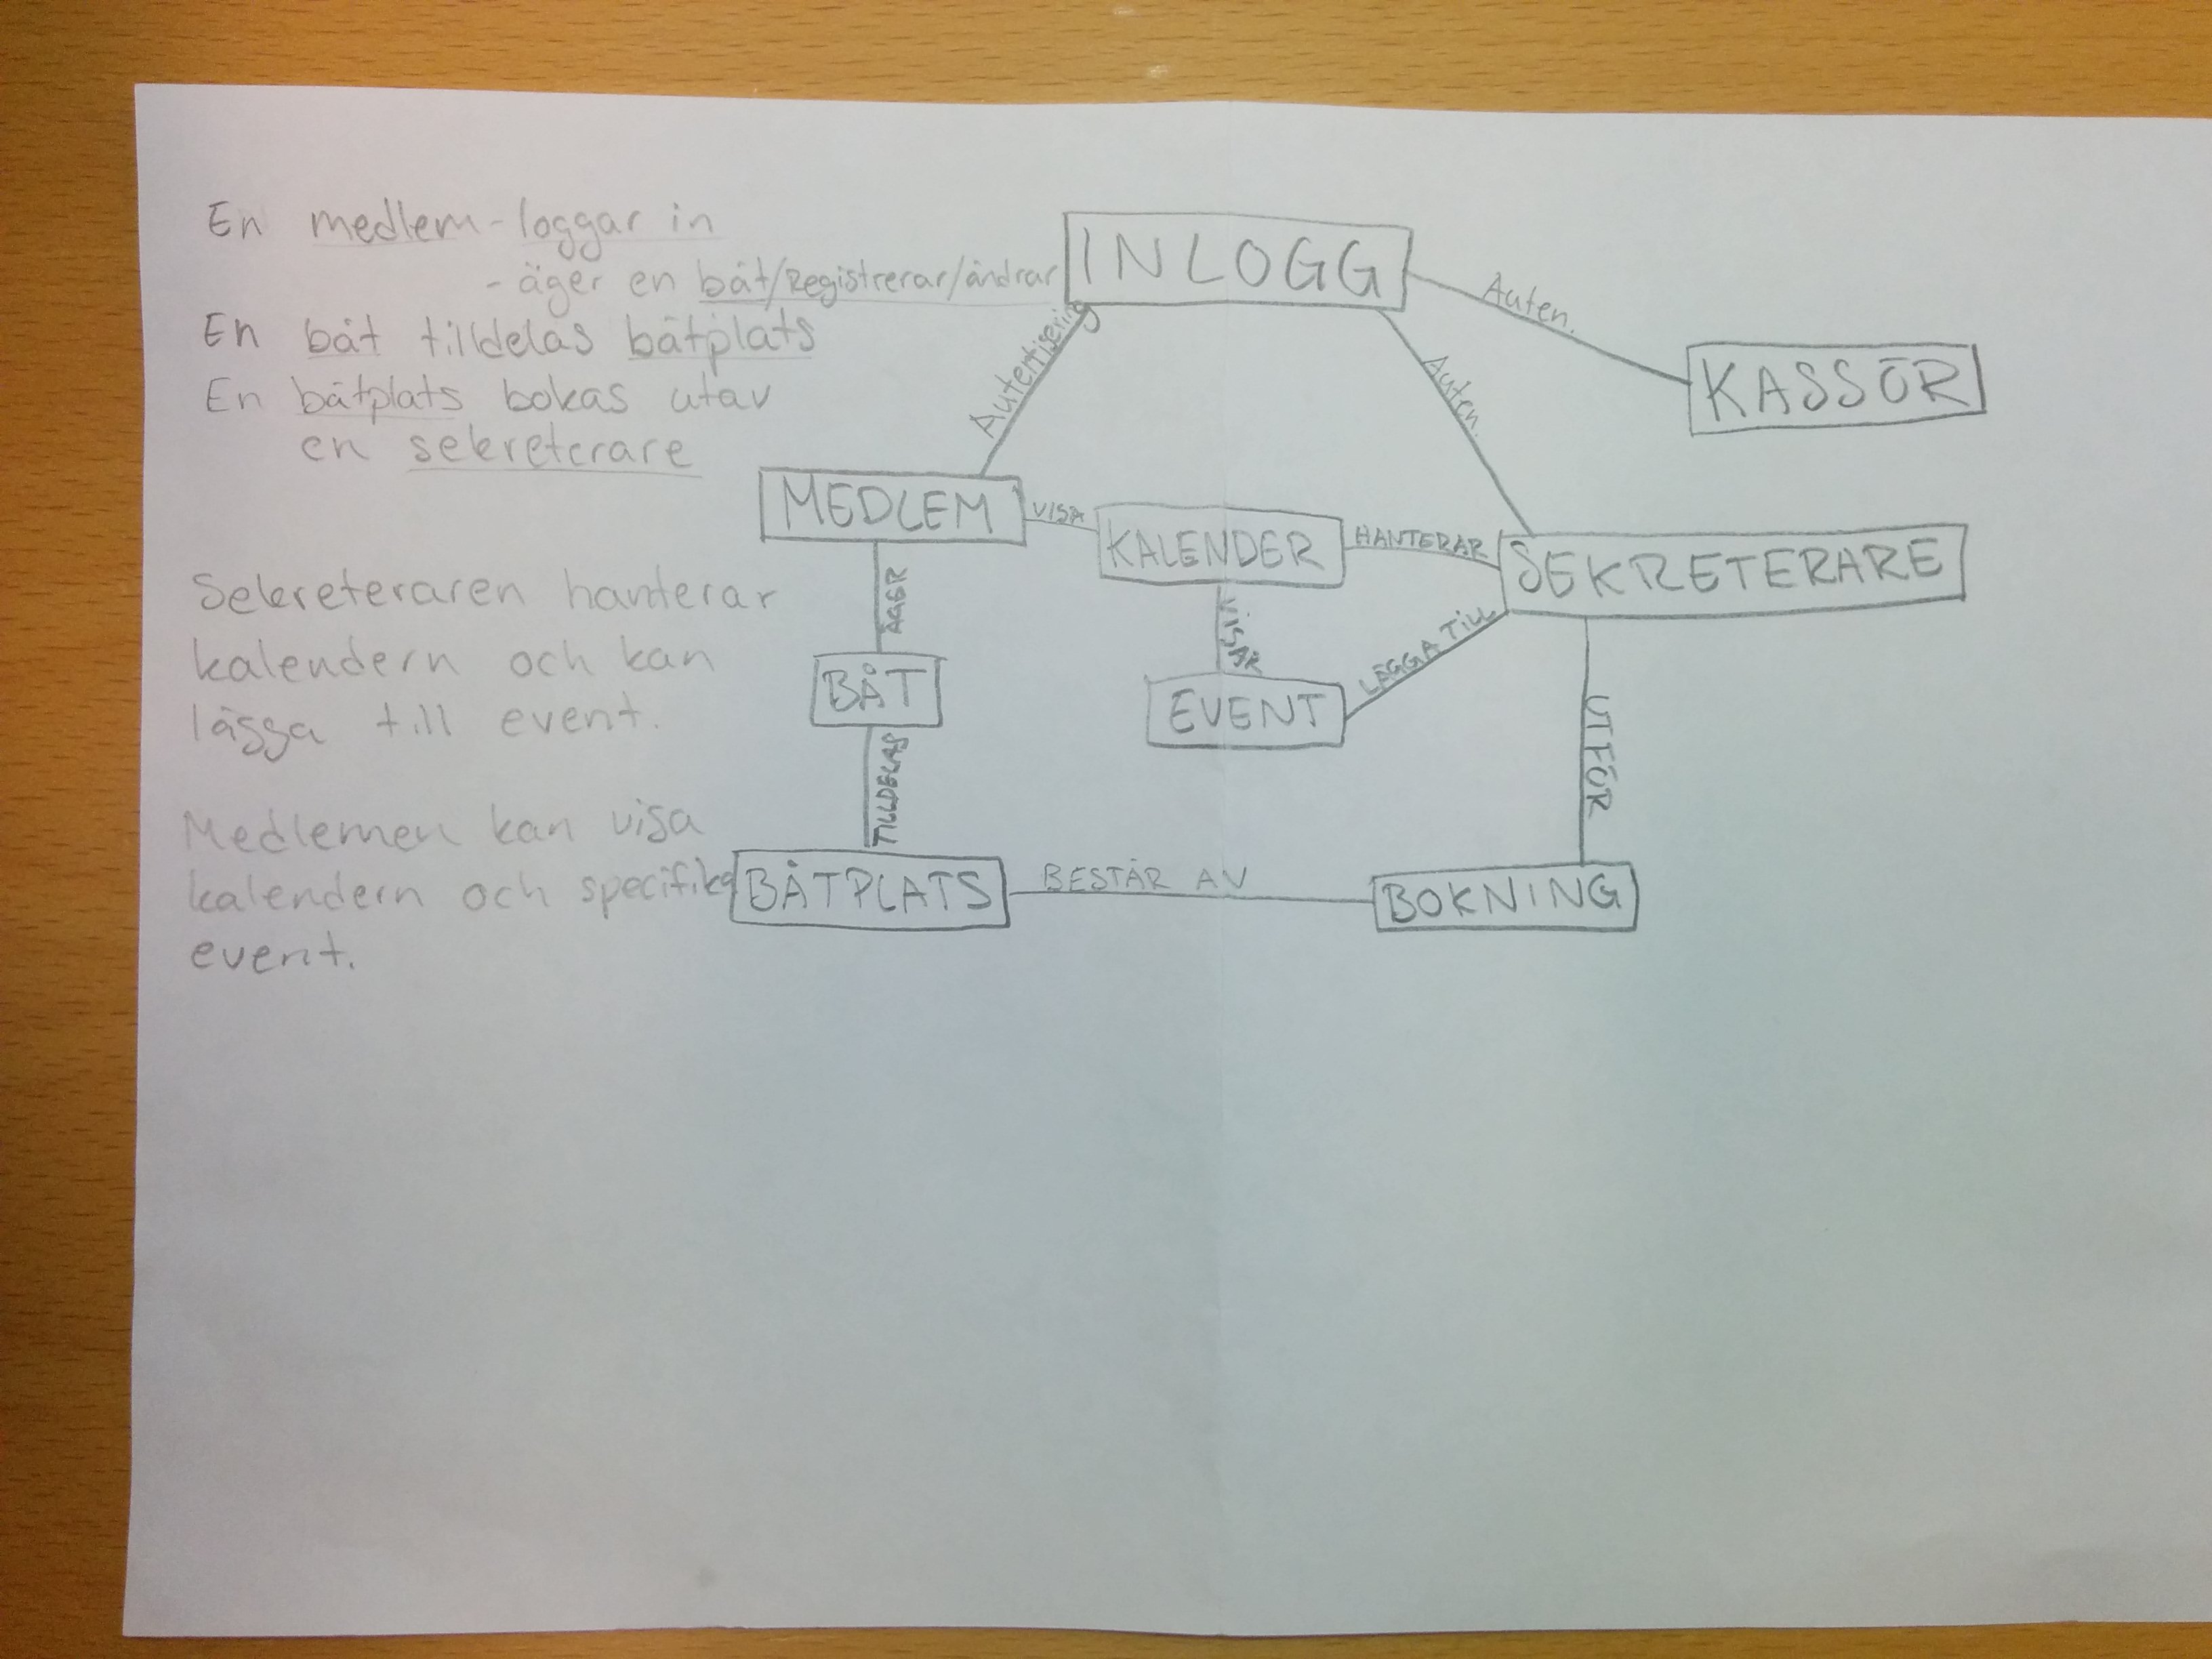 En medlem-loggar in
- äger en båt/Registrerar/ändrar
En båt tilldelas båtplats
En båtplats bokas utav
en sekreterare
Sekreteraren hanterar
kalendern och kan
lägga till event.
Medlemen kan visa
kalendern och specifika
event.
INLOGG
Auten.
KASSÖR
Autentisering
Auten.
MEDLEM
VISA
KALENDER
HANTERAR
SEKRETERARE
ÄGER
VISAR
LÄGGA TILL
BÅT
EVENT
UTFÖR
TILLDELAS
BÅTPLATS
BESTÅR AV
BOKNING